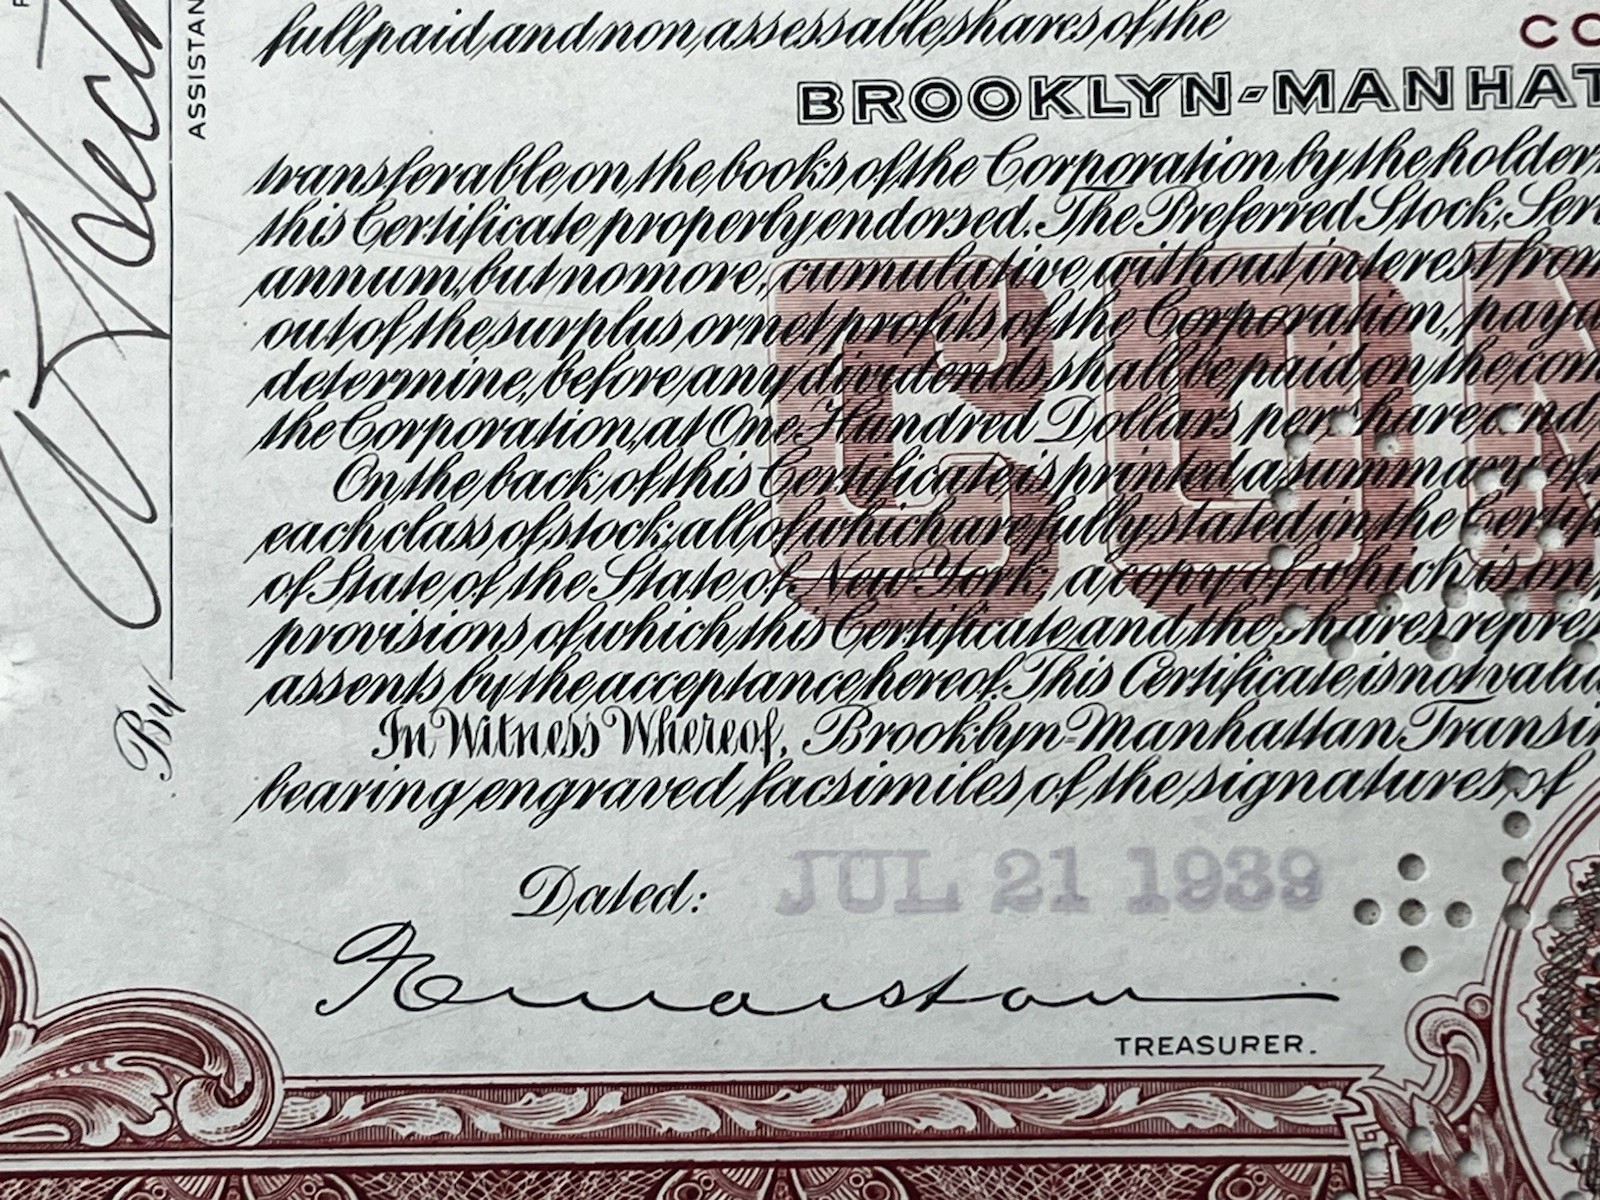 full paid and non assessable shares of the
CO
BROOKLYN-MANHAT
transferable on the books of the Corporation by the holder
this Certificate properly endorsed. The Preferred Stock, Seri
annum, but no more, cumulative without interest from
out of the surplus or net profits of the Corporation, paya
determine, before any dividends shall be paid on the com
the Corporation, at One Hundred Dollars per share and
On the back of this Certificate is printed a summary of
each class of stock, all of which are fully stated in the Certif
of State of the State of New York, a copy of which is on
provisions of which this Certificate and the shares repres
assents by the acceptance hereof. This Certificate is not valid
In Witness Whereof, Brooklyn-Manhattan Transi
bearing engraved facsimiles of the signatures of
Dated: JUL 21 1939
TREASURER.
By
ASSISTAN
COM